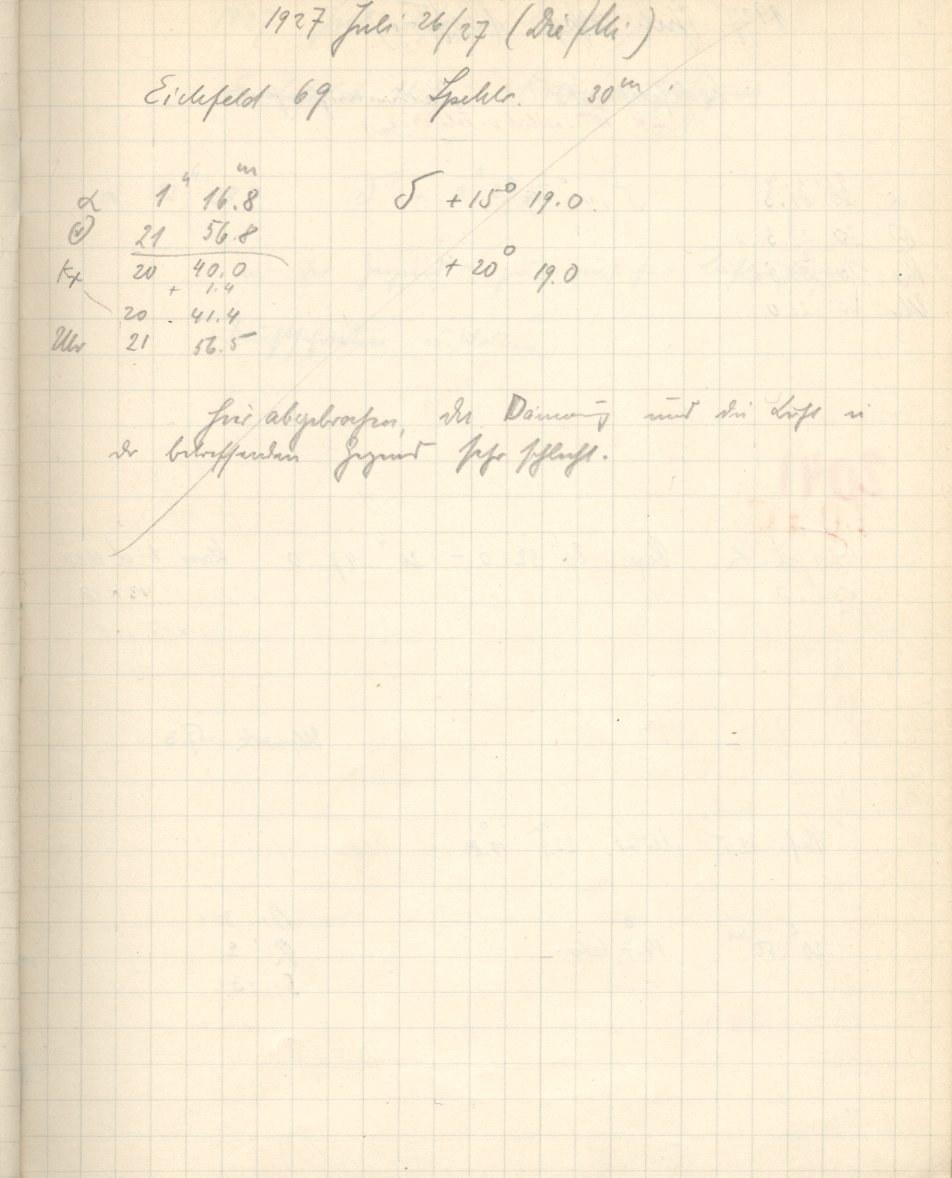 1927 Juli 26/27 (Die/Mi.)
Eichfeld 69 Spektr. 30ᵐ
α 1ʰ 16.8ᵐ δ +15° 19.0
21 56.8
20 40.0 +20° 19.0
+ 1.4
20 41.4
Uhr 21 56.5
hier abgebrochen, da Dämmerung und die Luft in
der betreffenden Gegend sehr schlecht.